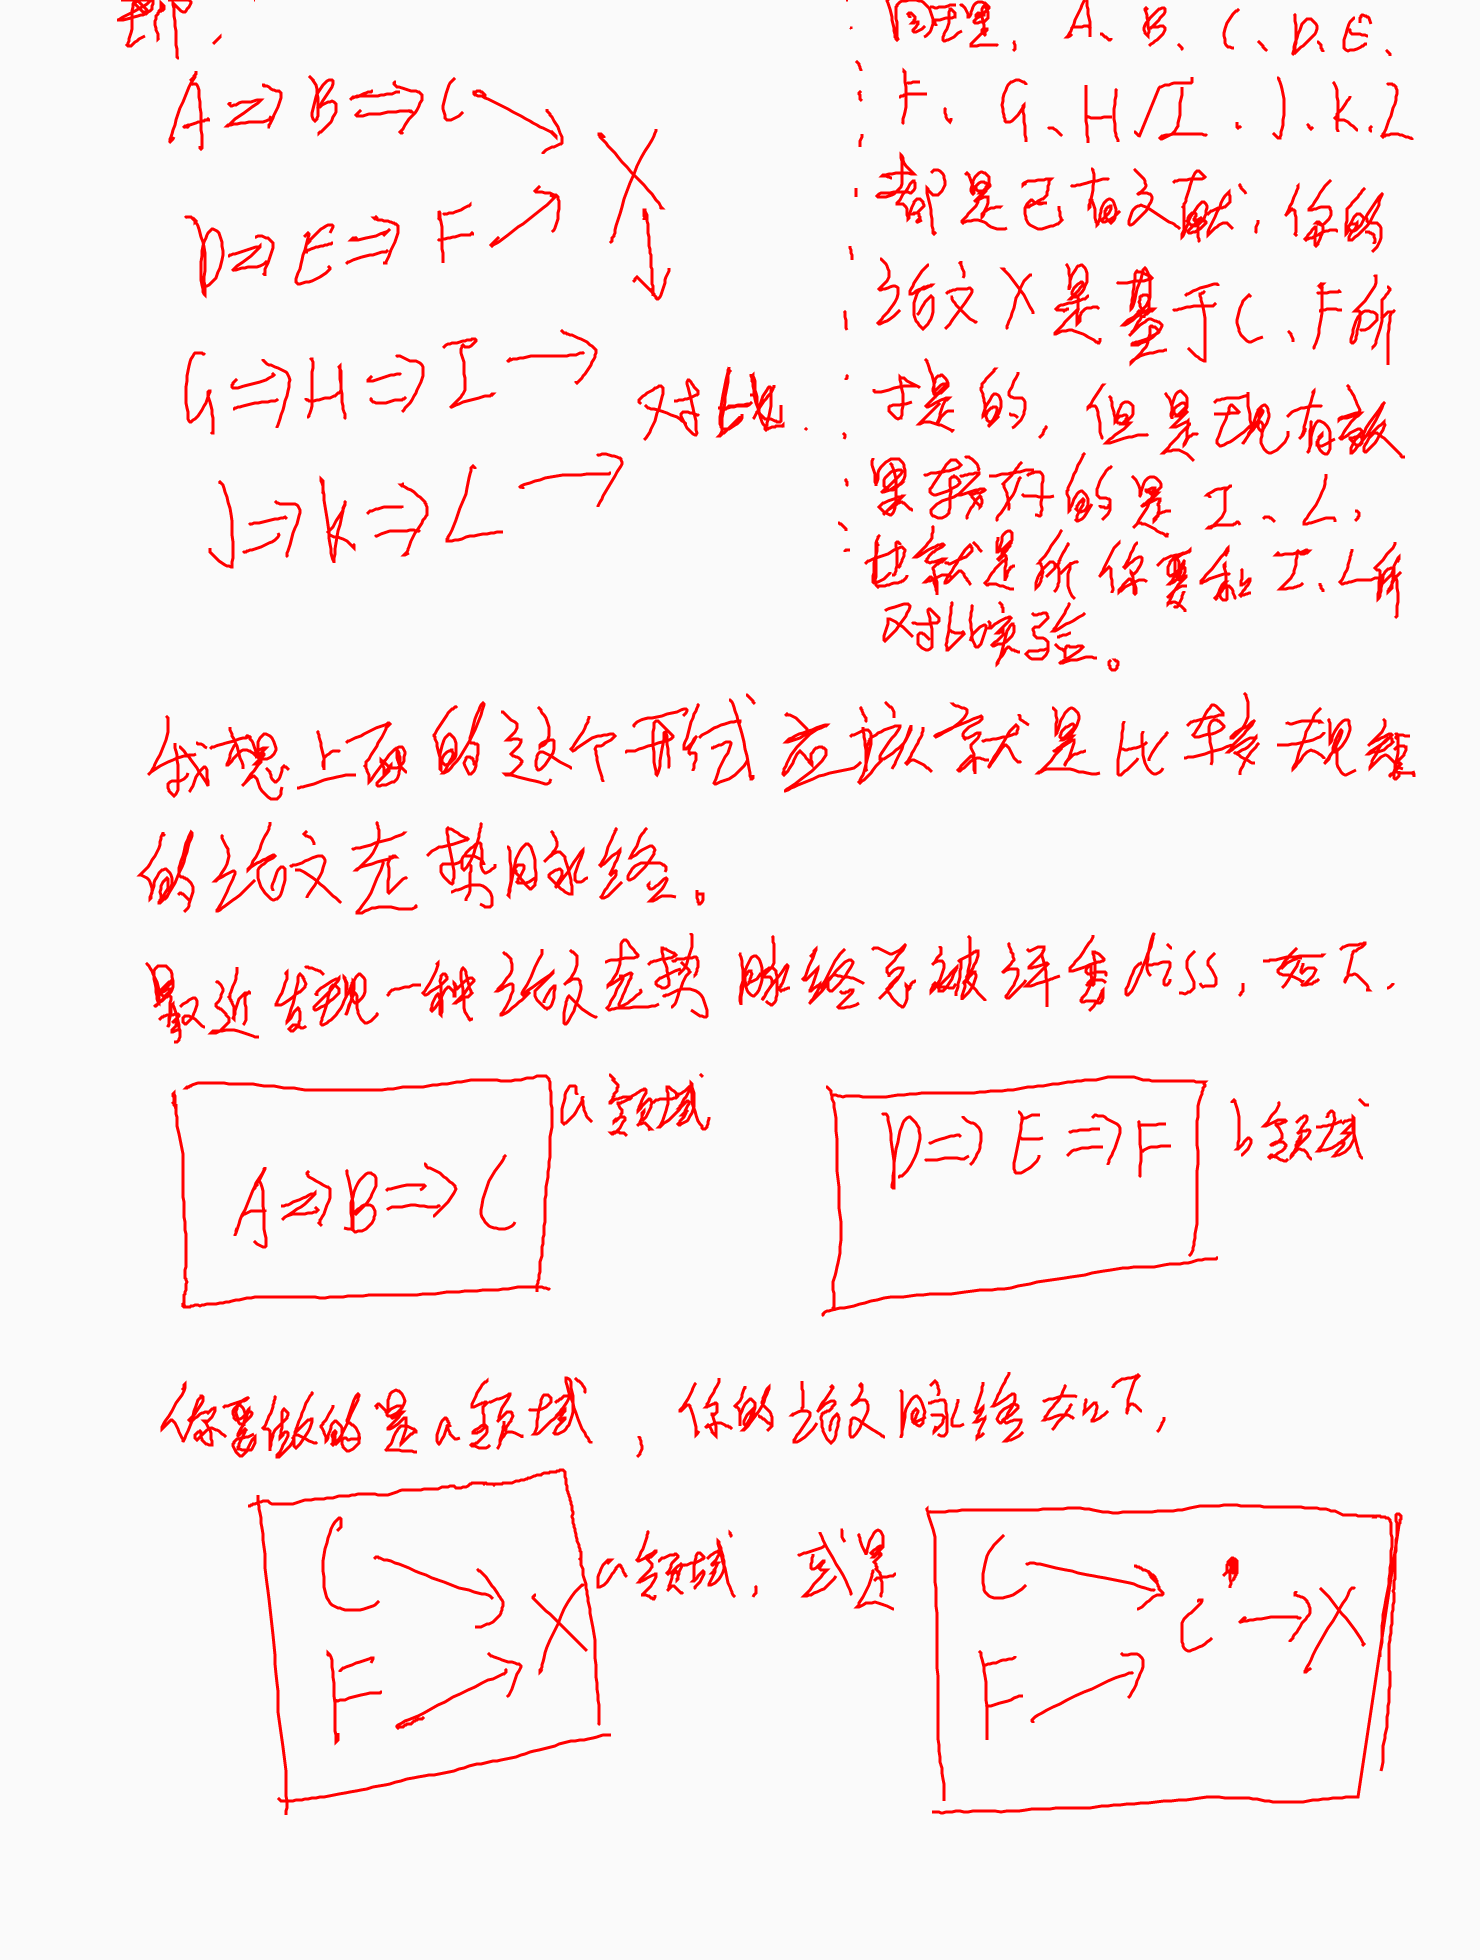 即,
A⇒B⇒C
X
D⇒E⇒F
G⇒H⇒I→
对比.
J⇒K⇒L→
同理, A、B、C、D、E、
F、G、H、I、J、K、L
都是已有文献, 你的
论文X是基于C、F所
才是的, 但是现有效
果较好的是I、L,
也就是所你要和I、L所
对比实验。
我想上面的这个形式应该就是比较规矩
的论文走势脉络。
最近发现一种论文走势脉络总被评委diss, 如下.
a领域
A⇒B⇒C
b领域
D⇒E⇒F
你要做的是a领域, 你的论文脉络如下,
C
X
F
a领域, 或是
C
C'→X
F